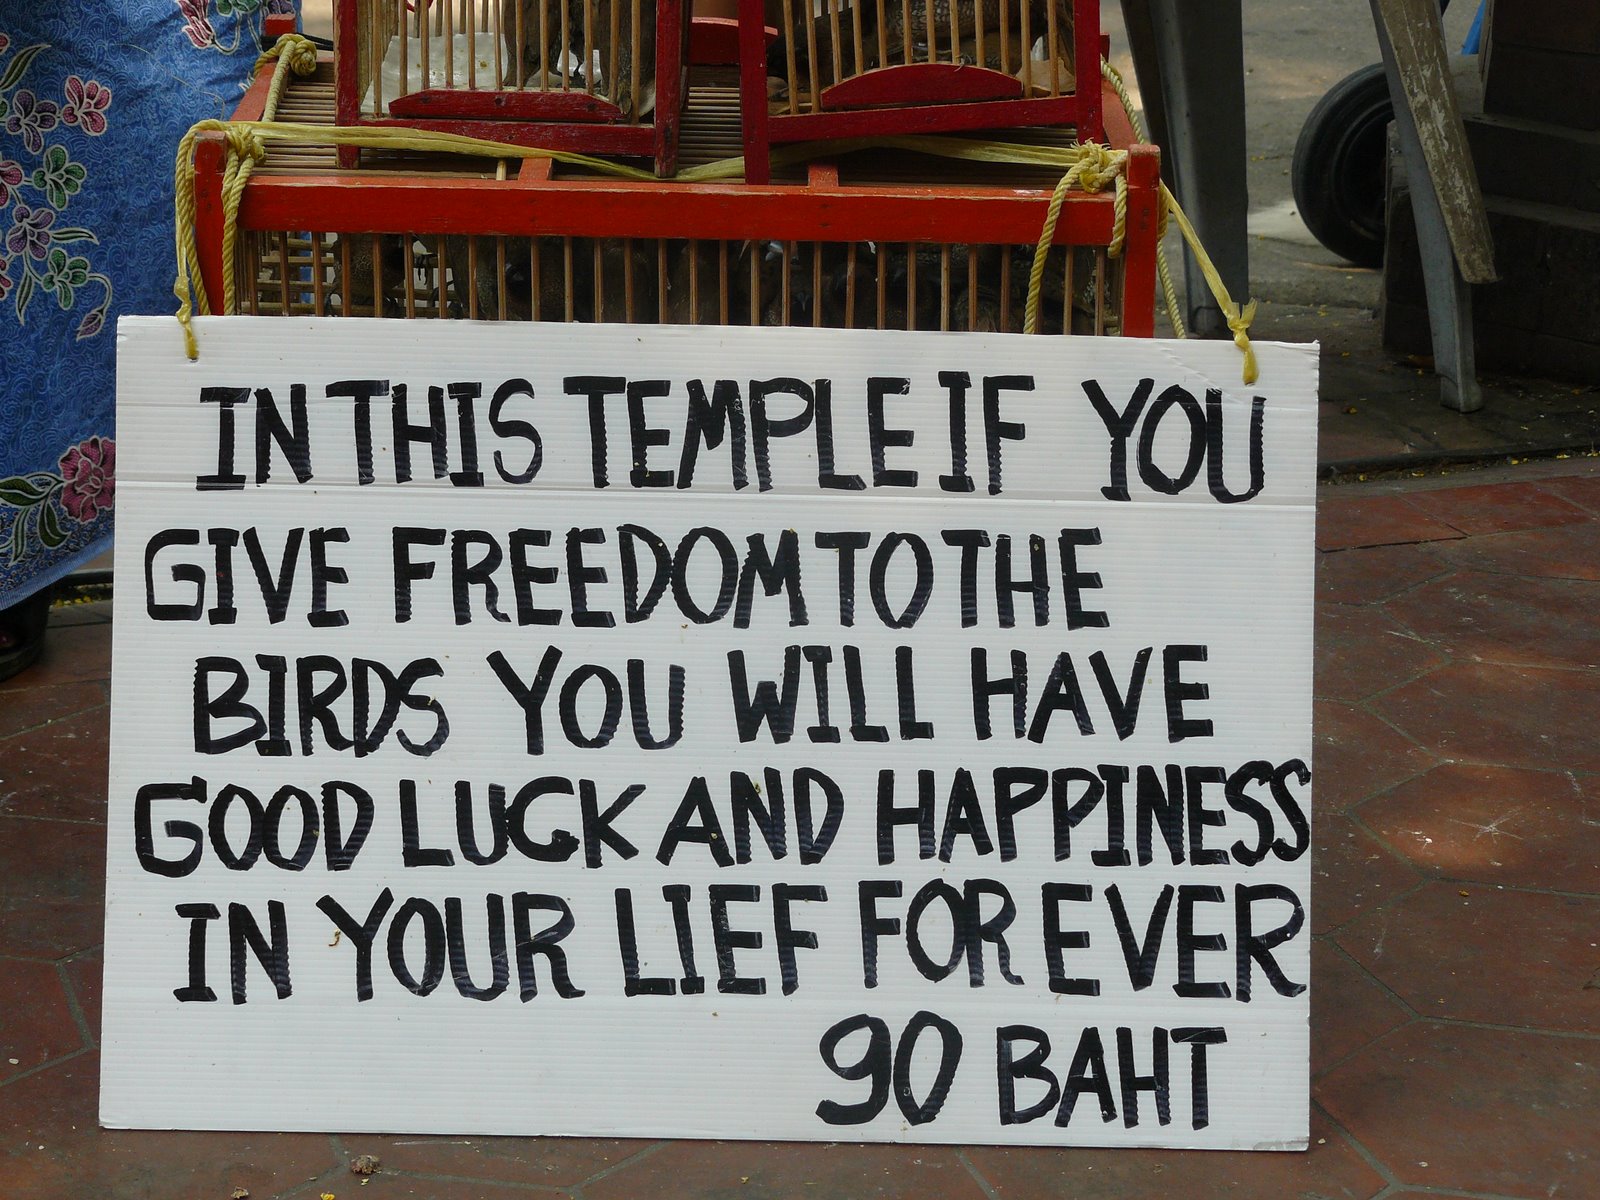 IN THIS TEMPLE IF YOU
GIVE FREEDOM TO THE
BIRDS YOU WILL HAVE
GOOD LUCK AND HAPPINESS
IN YOUR LIEF FOR EVER
90 BAHT